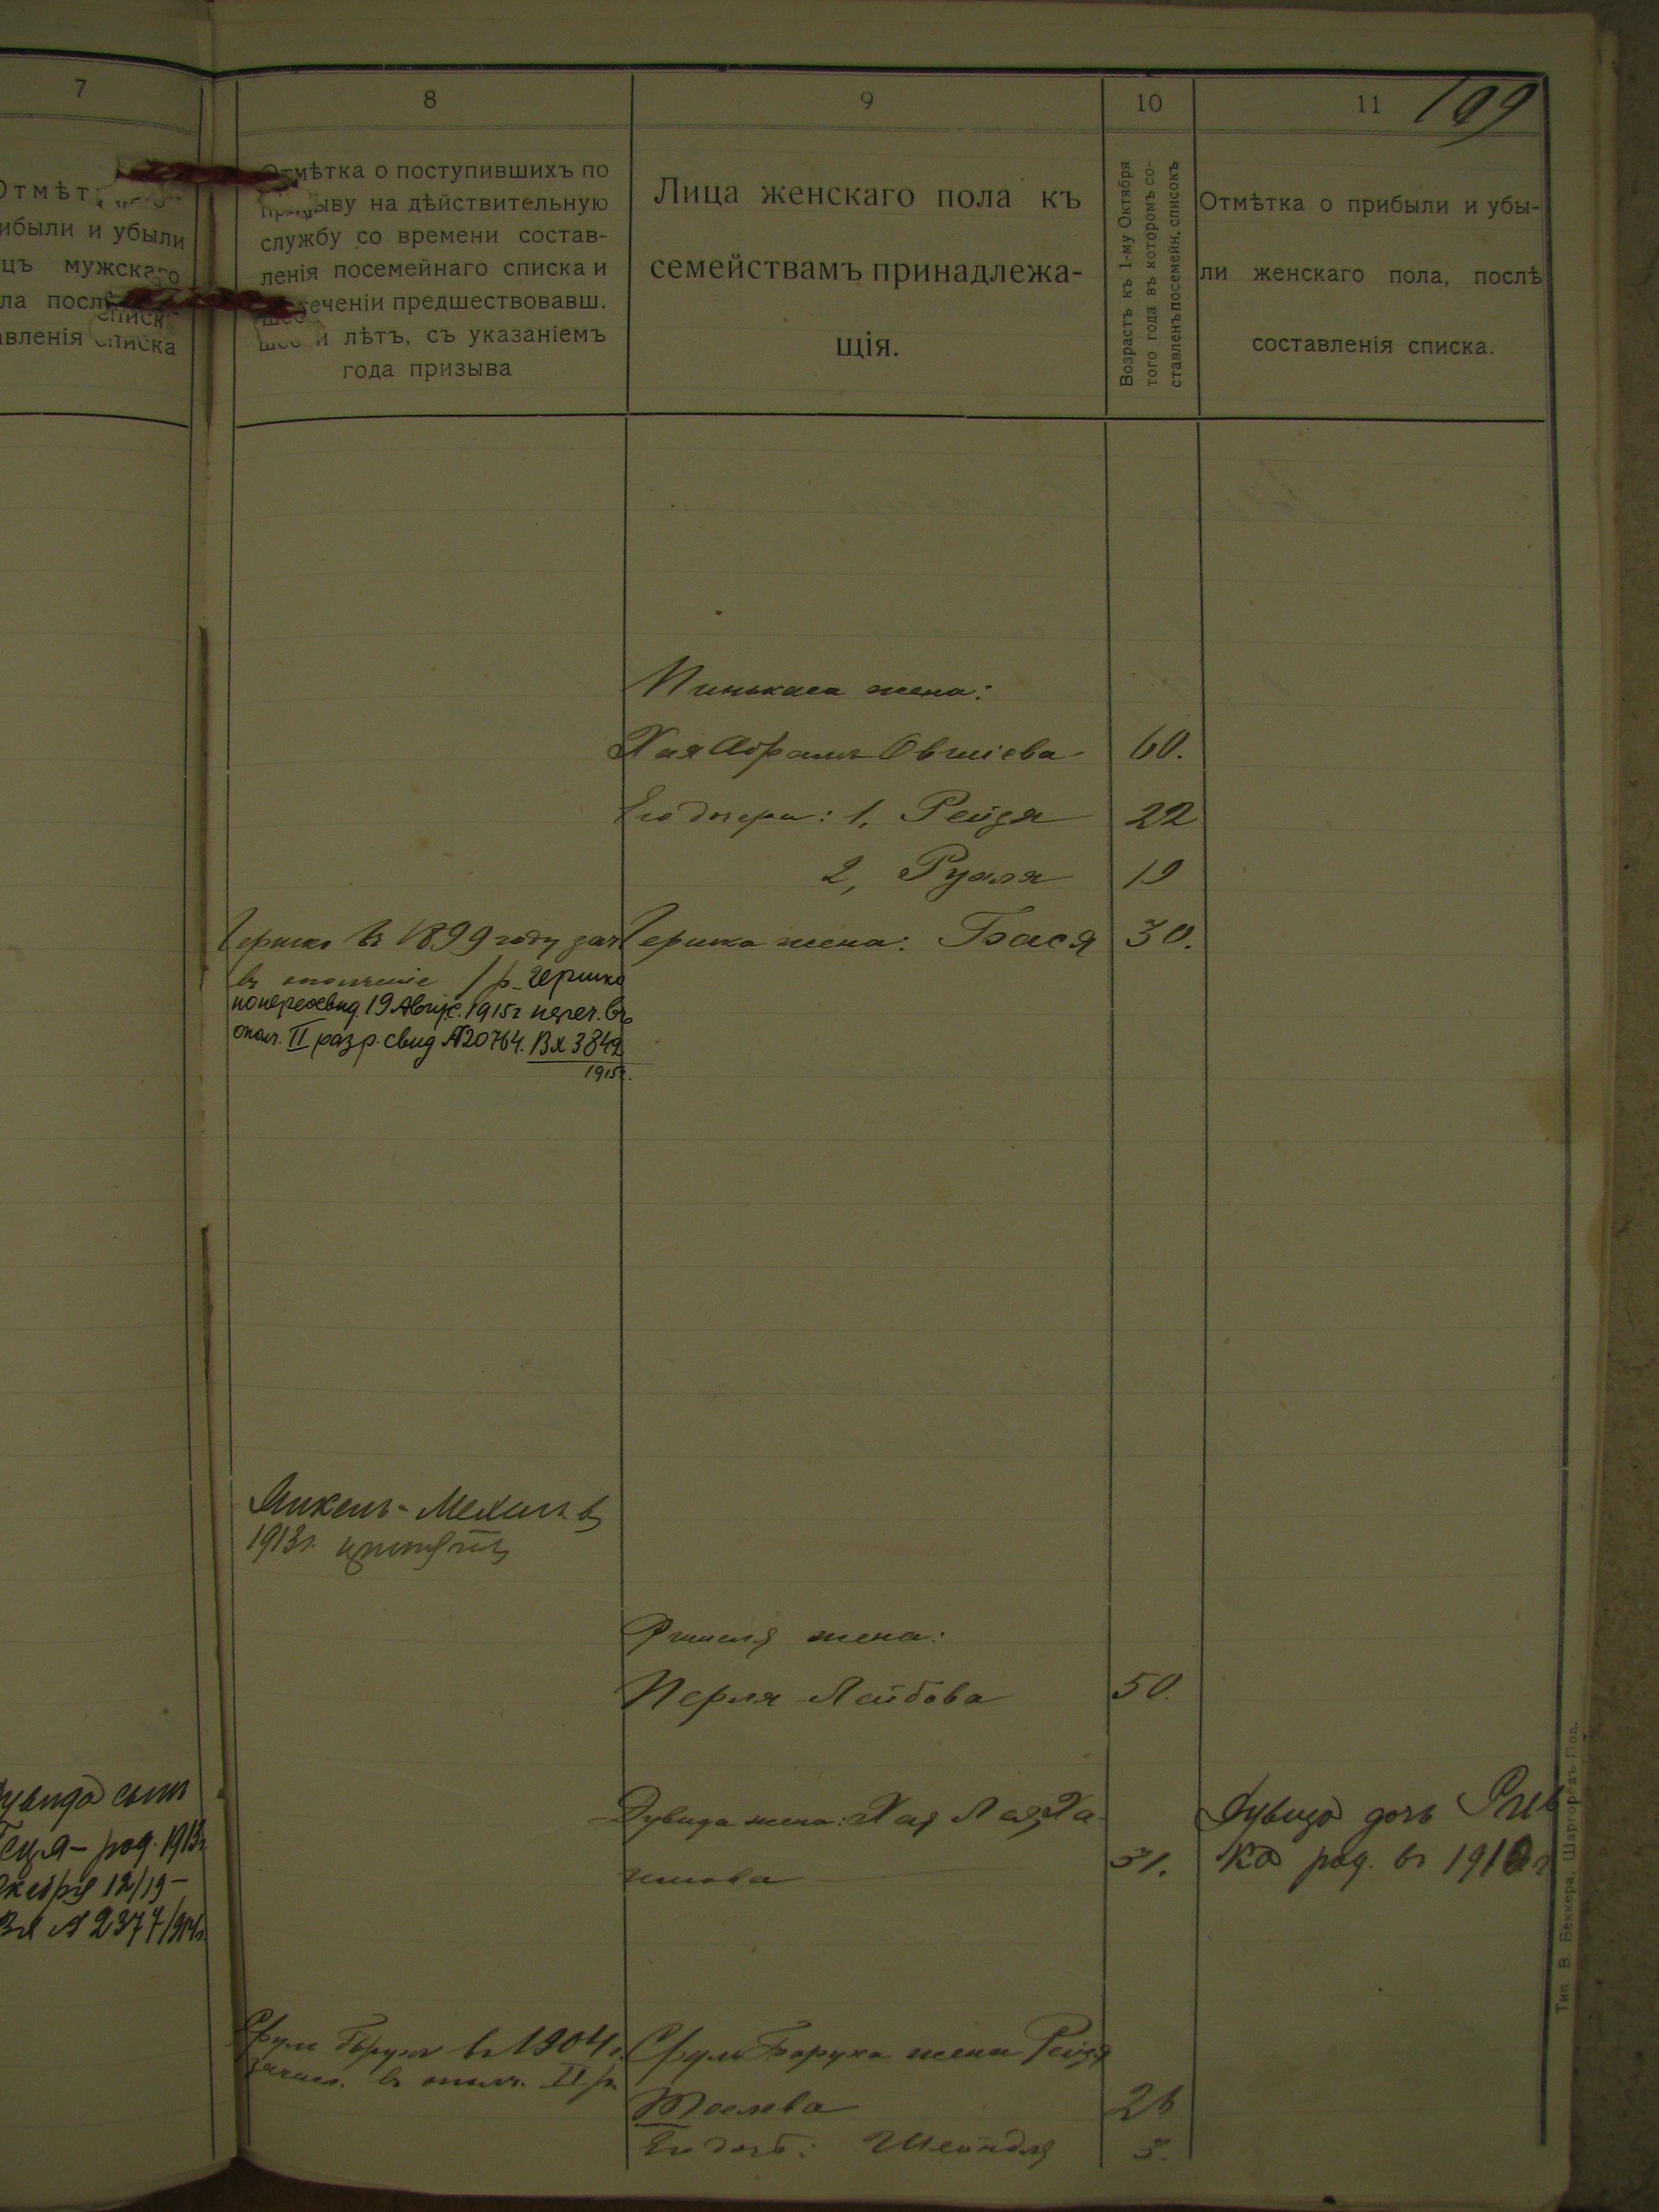 7
8
9
10
11
199
Отмѣт
ибыли и убыли
цъ мужскаго
ла послѣ
авленія списка
Отмѣтка о поступившихъ по
призыву на дѣйствительную
службу со времени состав-
ленія посемейнаго списка и
теченіи предшествовавш.
и лѣтъ, съ указаніемъ
года призыва
Лица женскаго пола къ
семействамъ принадлежа-
щія.
Возрастъ къ 1-му Октября
того года въ которомъ со-
ставленъ посемейн. списокъ
Отмѣтка о прибыли и убы-
ли женскаго пола, послѣ
составленія списка.
Пинькаса жена:
Хая Абрамъ Овшіева 60.
Его дочери: 1, Рейзя 22
2, Рузля 19
Гершко въ 1899 году зач
въ ополченіе 1 р. Гершко
попереосвид. 19 Август. 1915 г. переч. въ
опол. II разр. свид № 20764. Вх 3842
1915 г.
Гершка жена: Бася 30.
Янкель-Мехиль въ
1913 г.
жена:
Перля Лейбова 50.
Дувида жена: Хая Лая Ха-
имова 31.
Дувида дочь Рив
ка род. въ 1910 г
увида сынъ
род. 1913 г
12/19 -
Вх № 2377/914 г.
Сруль Борухъ въ 1904 г.
зачис. въ ополч. II р.
Сруль Боруха жена Рейзя
26
Его дочь: Шейндля 3.
Тип. В. Беккера, Шаргородъ-Под.